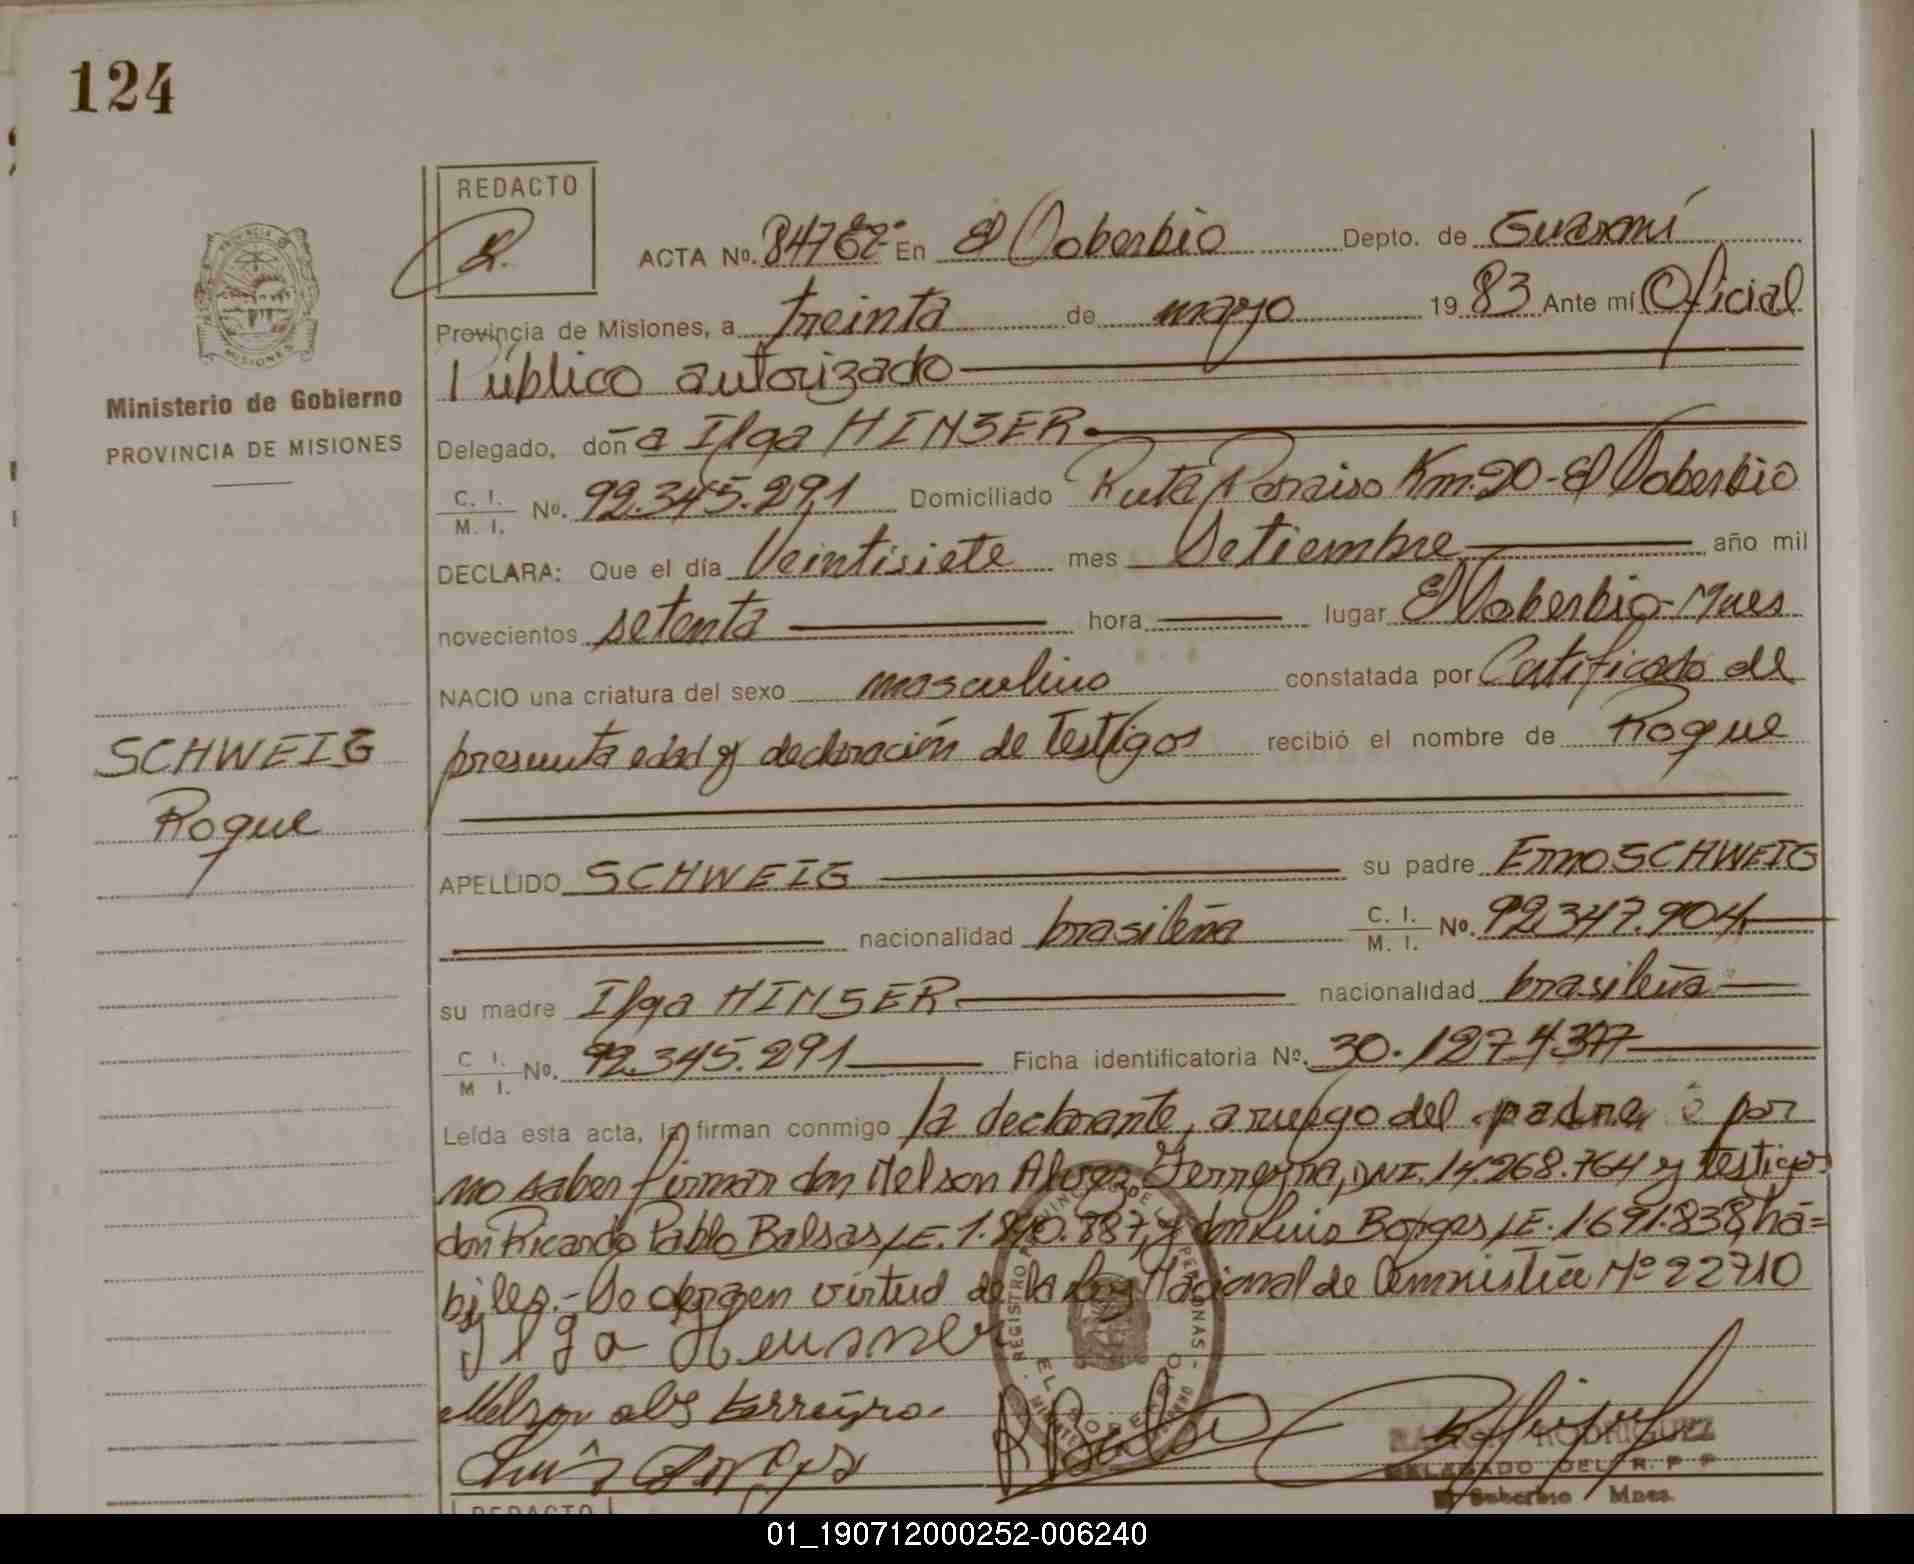 124
REDACTO
ACTA Nº. En El Soberbio Depto. de Guaraní
Provincia de Misiones, a treinta de mayo 1983 Ante mí Oficial
Público autorizado
Ministerio de Gobierno
PROVINCIA DE MISIONES
Delegado, don̄a Ilga HINSER
C. I. M. I. Nº. 92.345.291 Domiciliado Ruta Paraiso Km. 20 - El Soberbio
DECLARA: Que el día Veintisiete mes Setiembre año mil
novecientos setenta hora lugar El Soberbio - Mnes
NACIO una criatura del sexo masculino constatada por Certificado de
presunta edad y declaración de Testigos recibió el nombre de Roque
SCHWEIG
Roque
APELLIDO SCHWEIG su padre Erno SCHWEIG
nacionalidad brasileña C. I. M. I. Nº. 92.347.904
su madre Ilga HINSER nacionalidad brasileña
C I. M I. Nº. 92.345.291 Ficha identificatoria Nº. 30.
Leída esta acta, la firman conmigo la declarante, a ruego del padre por
no saber firmar don Nelson Alvez Ferreyra, DNI. 14.268.764 y testigos
don Ricardo Pablo Balsas, LE. 1.840.887, y don Luis Borges LE. 1.691.838, há=
biles.- Se en virtud de la Ley Nacional de Amnistía Nº 22710
Ilga Heusner
REGISTRO PROVINCIAL DE LAS PERSONAS
EL SOBERBIO
RODRIGUEZ
DELAGADO DEL R. P P
El Soberbio Mnes.
REDACTO
01_190712000252-006240